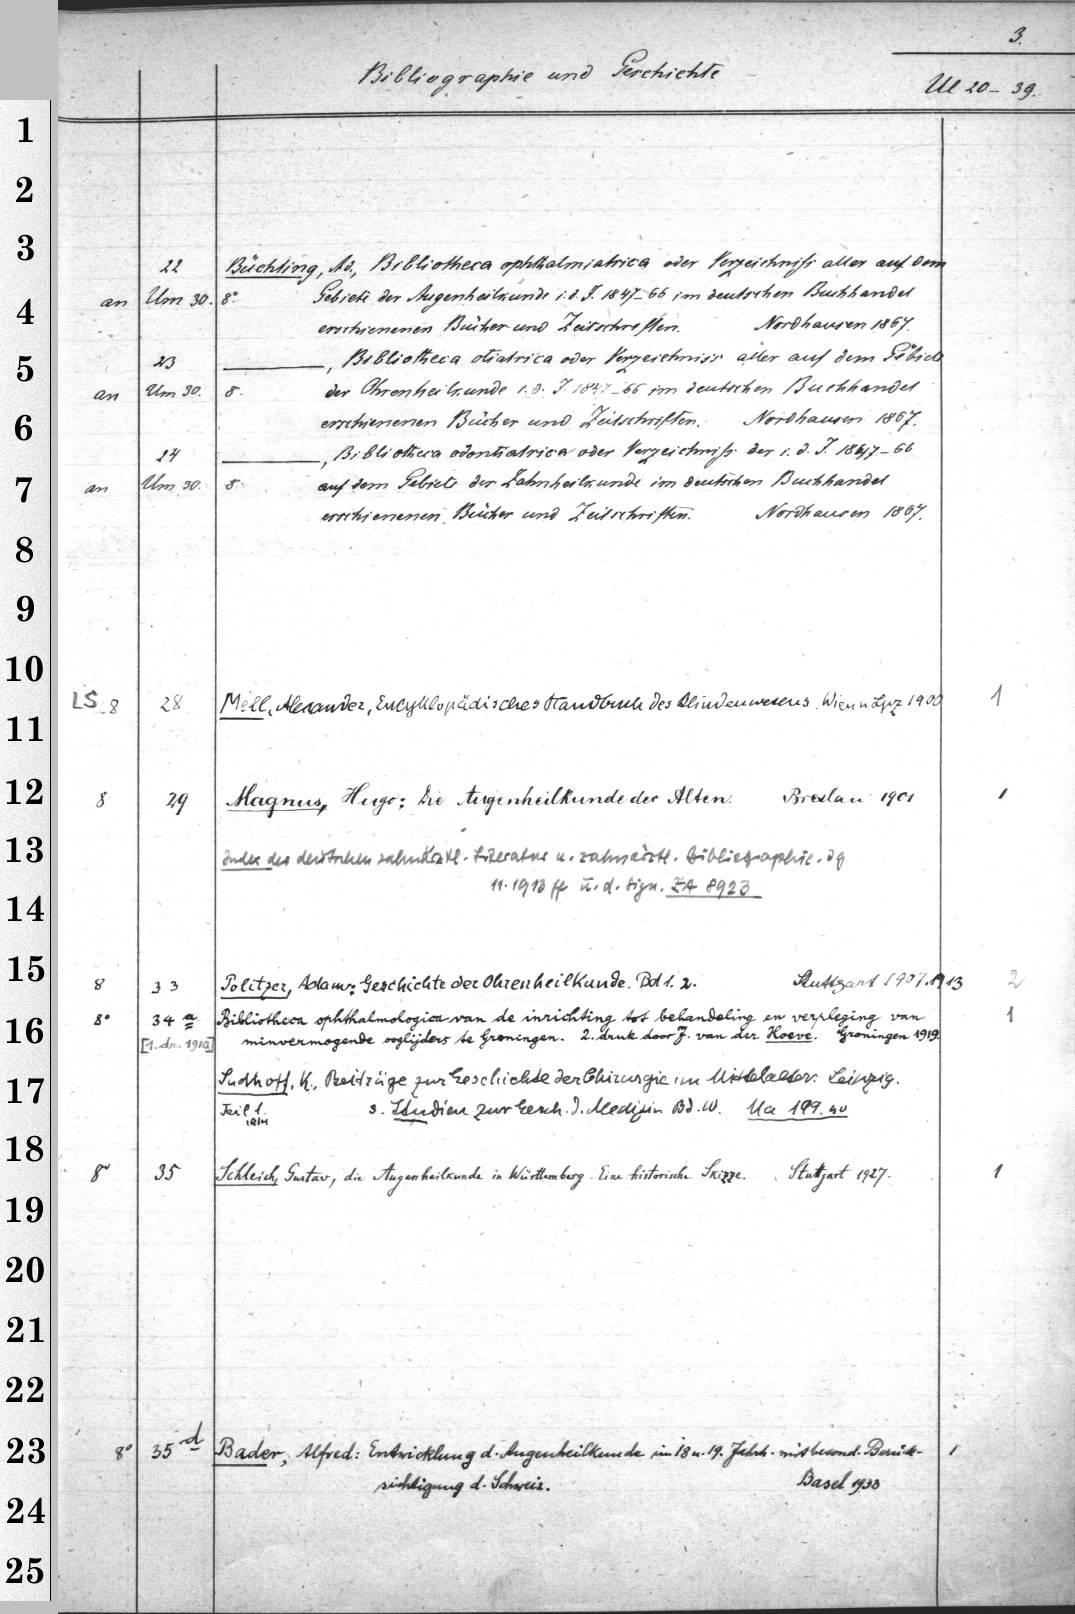 3.
Bibliographie und Geschichte
Ul 20-39.
1
2
3
22 Büchting, Ad., Bibliotheca ophthalmiatrica oder Verzeichniß aller auf dem
an Um 30. 8° Gebiete der Augenheilkunde i. d. J. 1847-66 im deutschen Buchhandel
4
erschienenen Bücher und Zeitschriften. Nordhausen 1867.
5
23 ———, Bibliotheca otiatrica oder Verzeichniss aller auf dem Gebiete
an Um 30. 8. der Ohrenheilkunde i. d. J. 1847-66 im deutschen Buchhandel
6
erschienenen Bücher und Zeitschriften. Nordhausen 1867.
24 ———, Bibliotheca odontiatrica oder Verzeichniß der i. d. J. 1847-66
7
an Um 30. 8. auf dem Gebiete der Zahnheilkunde im deutschen Buchhandel
erschienenen Bücher und Zeitschriften. Nordhausen 1867.
8
9
10
LS 8 28 Mell, Alexander, Encyklopädisches Handbuch des Blindenwesens. Wien u Lpz 1900 1
11
12
8 29 Magnus, Hugo: Die Augenheilkunde der Alten. Breslau 1901 1
13
Index der deutschen zahnärztl. Literatur u. zahnärztl. Bibliographie. Jg
11. 1913 ff u. d. Sign. ZA 8923
14
15
8 33 Politzer, Adam: Geschichte der Ohrenheilkunde. Bd 1. 2. Stuttgart 1907. 1913 2
16
8° 34 a Bibliotheca ophthalmologica van de inrichting tot behandeling en verpleging van 1
[1. dr. 1910] minvermogende ooglijders te Groningen. 2. druk door J. van der Hoeve. Groningen 1919.
17
Sudhoff, K., Beiträge zur Geschichte der Chirurgie im Mittelalter. Leipzig.
Teil 1. s. Studien zur Gesch. d. Medizin Bd. 10. Ua 199. 40
1914
18
8° 35 Schleich, Gustav, die Augenheilkunde in Württemberg. Eine historische Skizze. Stuttgart 1927. 1
19
20
21
22
23
8° 35 d Bader, Alfred: Entwicklung d. Augenheilkunde im 18 u. 19. Jahrh. mit besond. Berück- 1
sichtigung d. Schweiz. Basel 1933
24
25